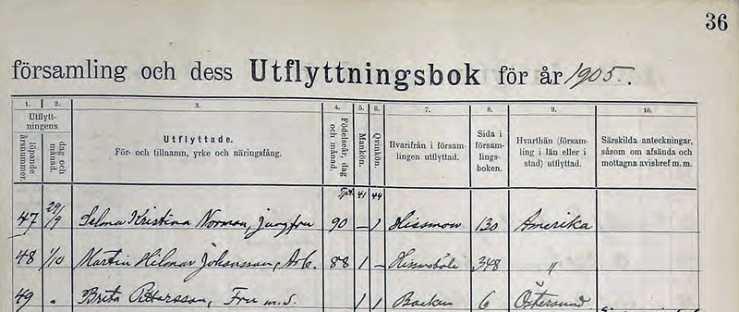 36
församling och dess Utflyttningsbok för år 1905.
1. 2. 3. 4. 5. 6. 7. 8. 9. 10.
Utflytt-
ningens
löpande
årsnummer.
dag och
månad.
Utflyttade.
För- och tillnamn, yrke och näringsfång.
Födelseår, dag
och månad.
Mankön.
Qvinkön.
Hvarifrån i försam-
lingen utflyttad.
Sida i
församlings-
boken.
Hvarthän (försam-
ling i län eller i
stad) utflyttad.
Särskilda anteckningar,
såsom om afsända och
mottagna avisbref m. m.
41 44
47 29/9 Selma Kristina Norman, jungfru 90 – 1 Hissmon 130 Amerika
48 1/10 Martin Hilmar Johansson, Arb. 88 1 – 348 "
49 " Brita Pettersson, Fru m. s. 1 1 Backen 6 Östersund